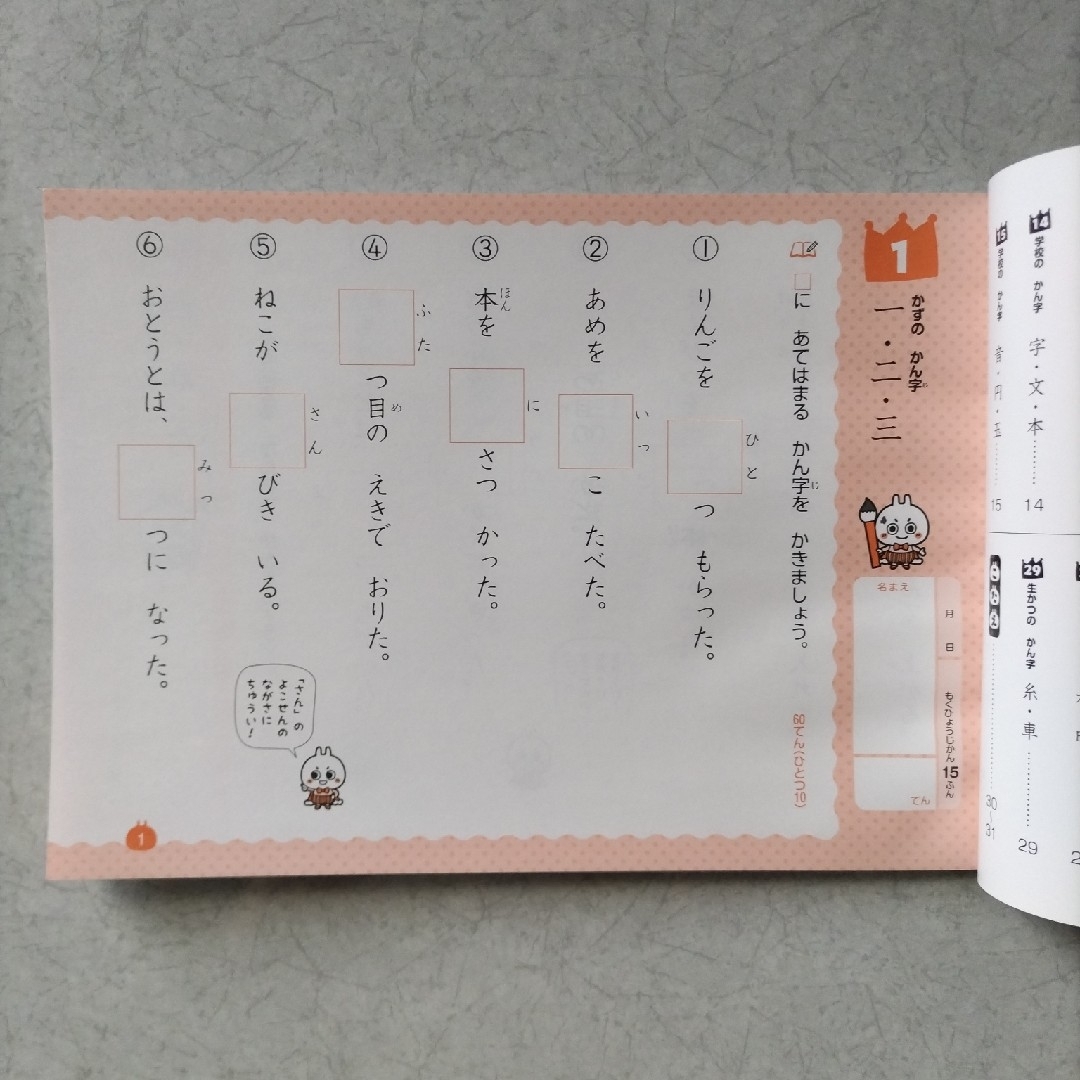 14
学校の かん字
字・文・本
14
15
学校の かん字
音・円・玉
15
29
生かつの かん字
糸・車
29
30
31
1
かずの かん字
一・二・三
名まえ
月 日
もくひょうじかん 15 ふん
てん
□に あてはまる かん字を かきましょう。
60てん(ひとつ10)
① りんごを □つ もらった。
ひと
② あめを □こ たべた。
いっ
③ 本を □さつ かった。
ほん
に
④ □つ目の えきで おりた。
ふた
め
⑤ ねこが □びき いる。
さん
⑥ おとうとは、□つに なった。
みっ
「さん」の
よこせんの
ながさに
ちゅうい!
1